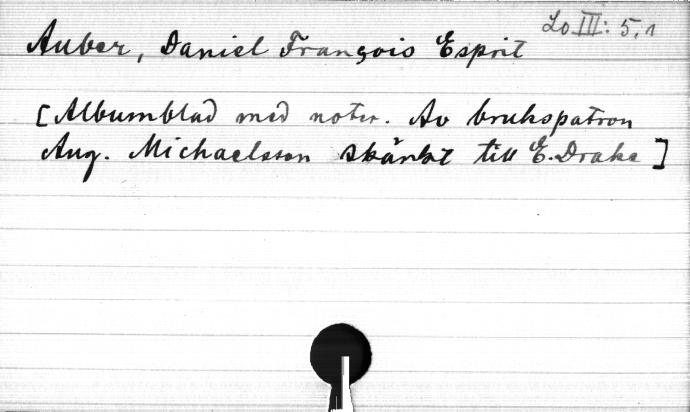 Lo III: 5,1
Auber, Daniel François Esprit
[Albumblad med noter. Av brukspatron
Aug. Michaelsson skänkt till E. Drake]